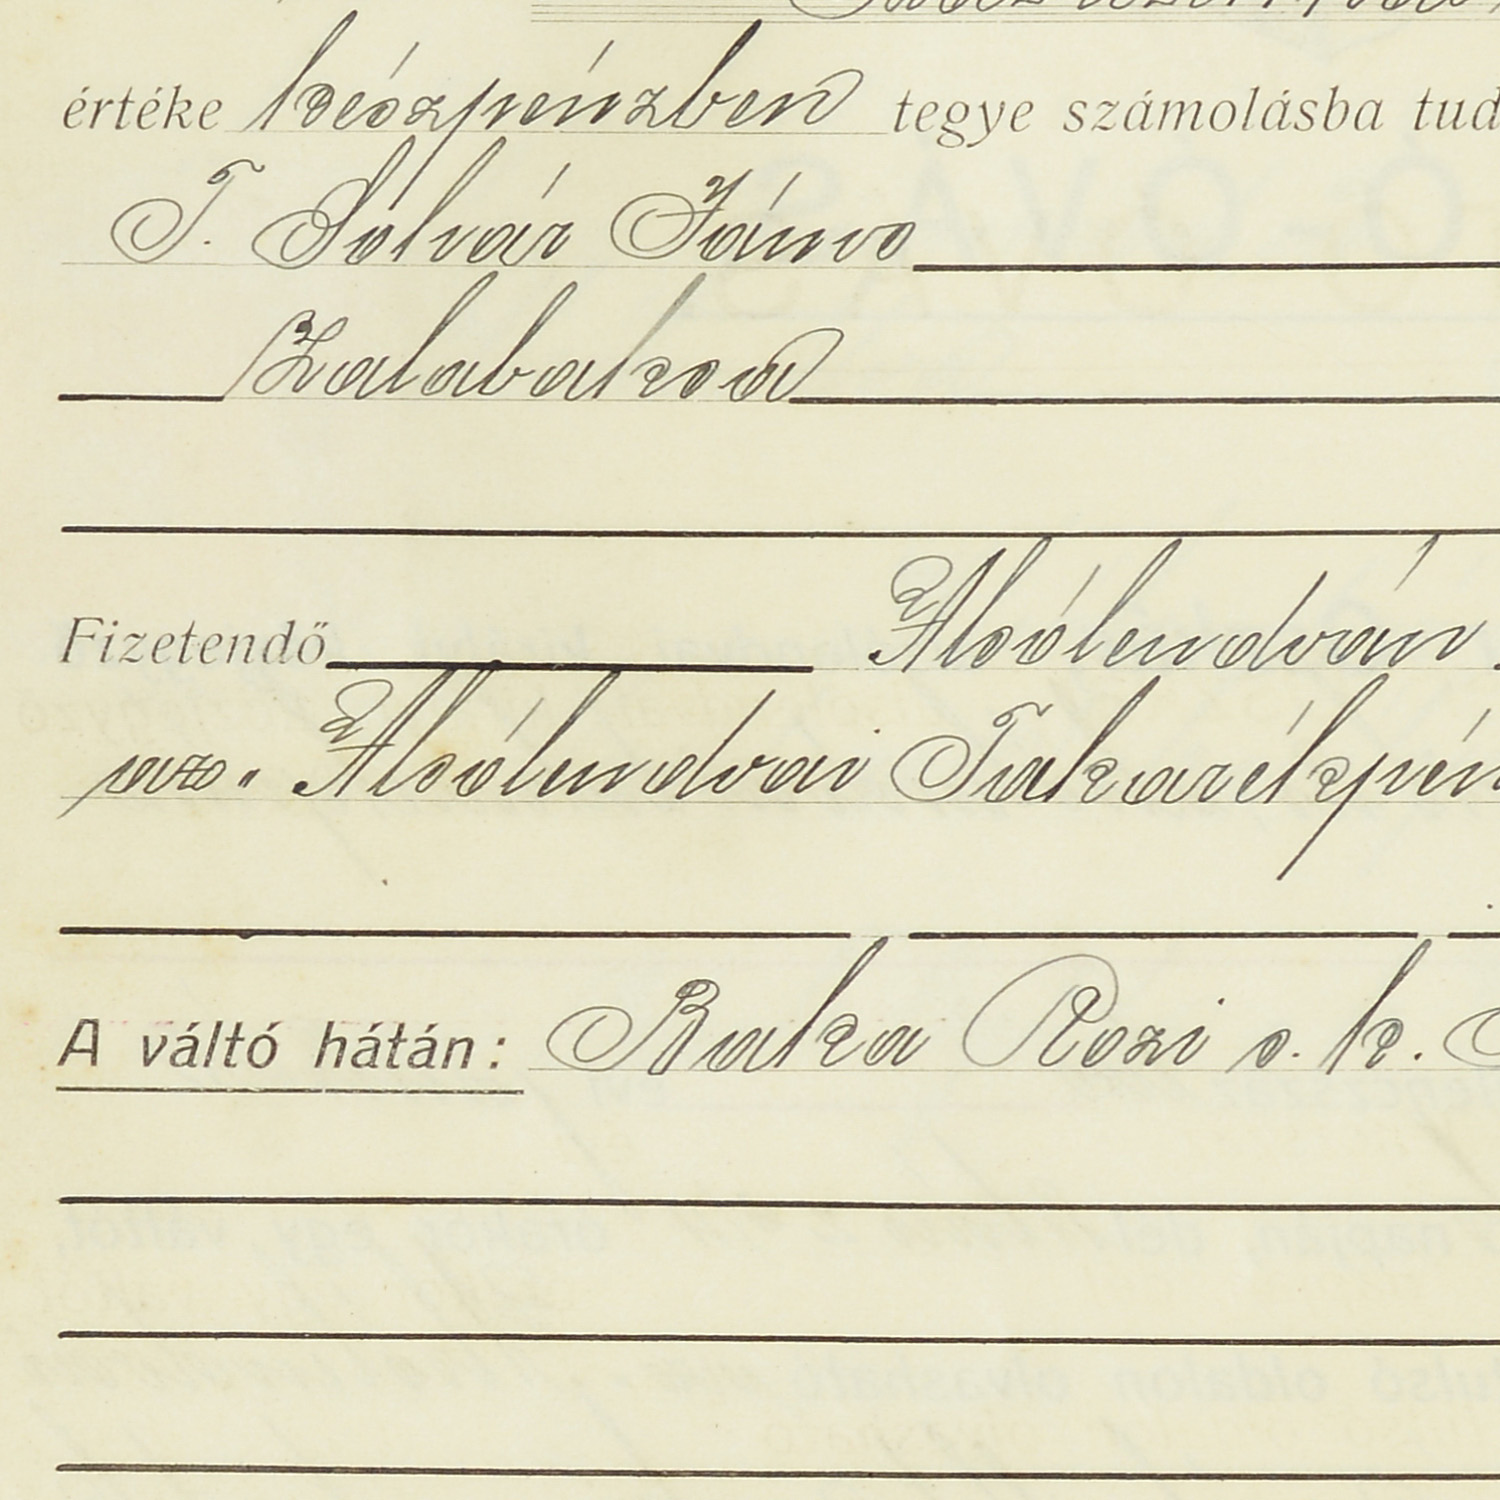 értéke készpénzben tegye számolásba tud
T. Sólvár János
Zalabaksa
Fizetendő Alsólendván
az Alsólendvai Takarékpén
A váltó hátán: Baka Rozi s. k.